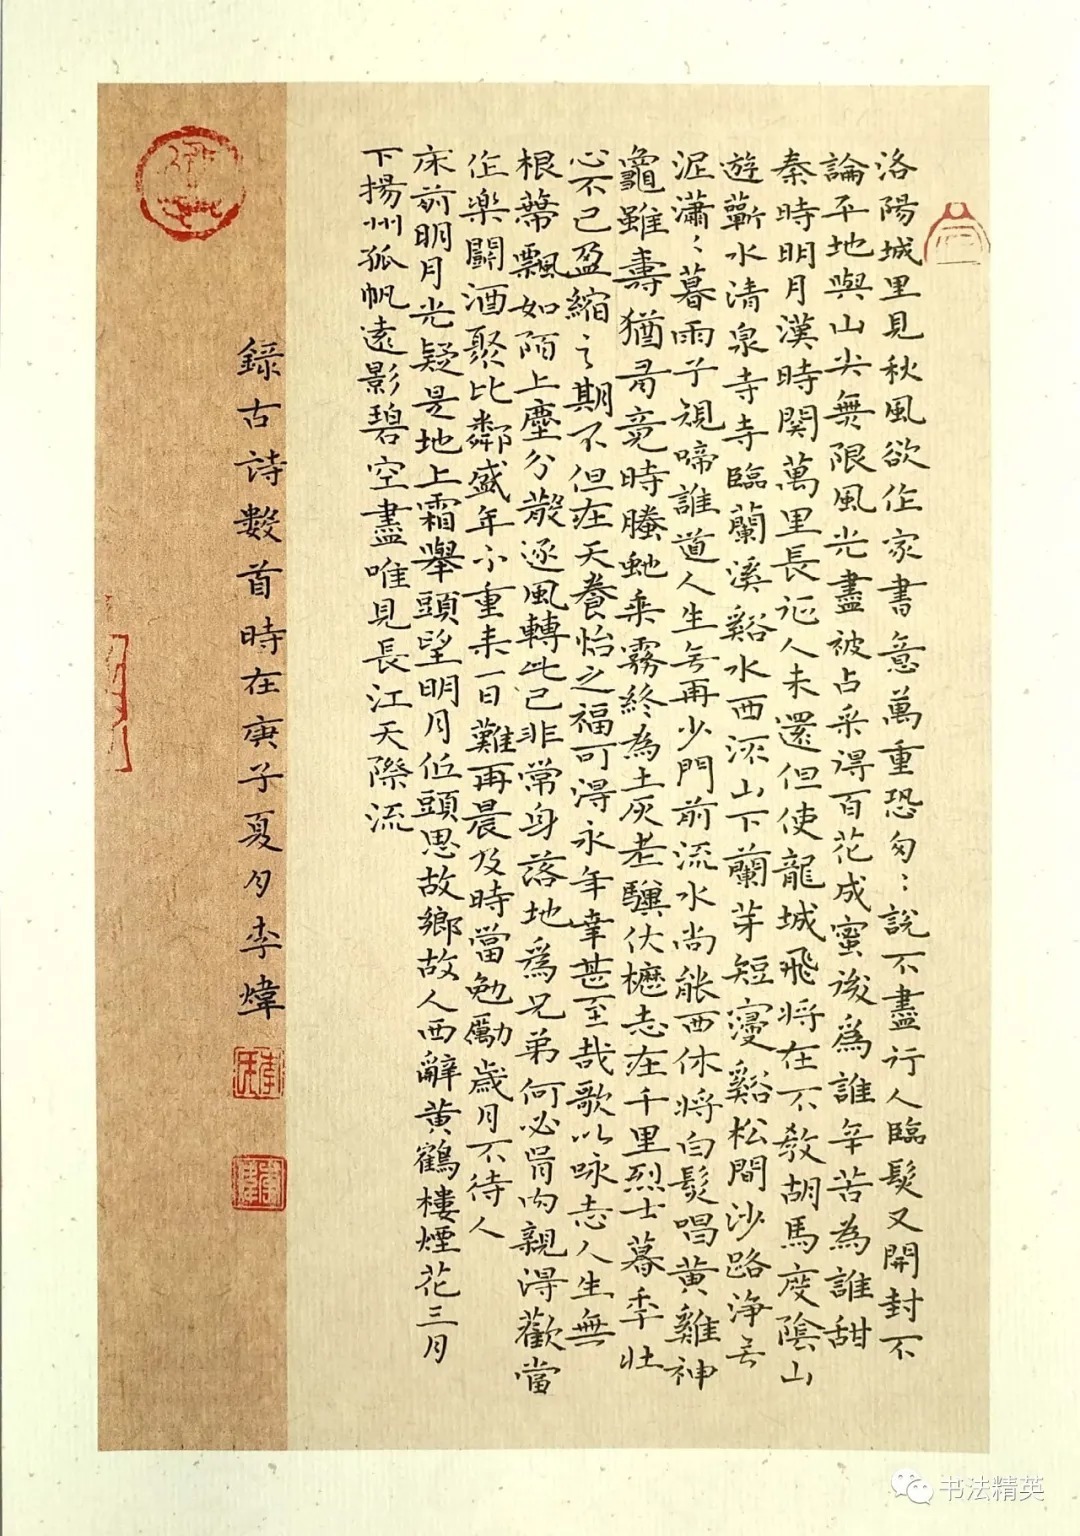 洛陽城里見秋風欲作家書意萬重恐匆〻說不盡行人臨髮又開封不
論平地與山尖無限風光盡被占采得百花成蜜後為誰辛苦為誰甜
秦時明月漢時関萬里長征人未還但使龍城飛將在不教胡馬度陰山
遊蘄水清泉寺寺臨蘭溪谿水西流山下蘭芽短寖谿松間沙路淨無
泥瀟〻暮雨子規啼誰道人生無再少門前流水尚能西休將白髮唱黄雞神
龜雖壽猶有竟時騰虵乘霧終為土灰老驥伏櫪志在千里烈士暮年壯
心不已盈縮之期不但在天養怡之福可得永年幸甚至哉歌以咏志人生無
根蒂飄如陌上塵分散逐風轉此已非常身落地為兄弟何必骨肉親得歡當
作樂鬭酒聚比鄰盛年不重来一日難再晨及時當勉勵歲月不待人
床前明月光疑是地上霜舉頭望明月低頭思故鄉故人西辭黄鶴樓煙花三月
下揚州孤帆遠影碧空盡唯見長江天際流
錄古詩數首時在庚子夏月李煒
书法精英